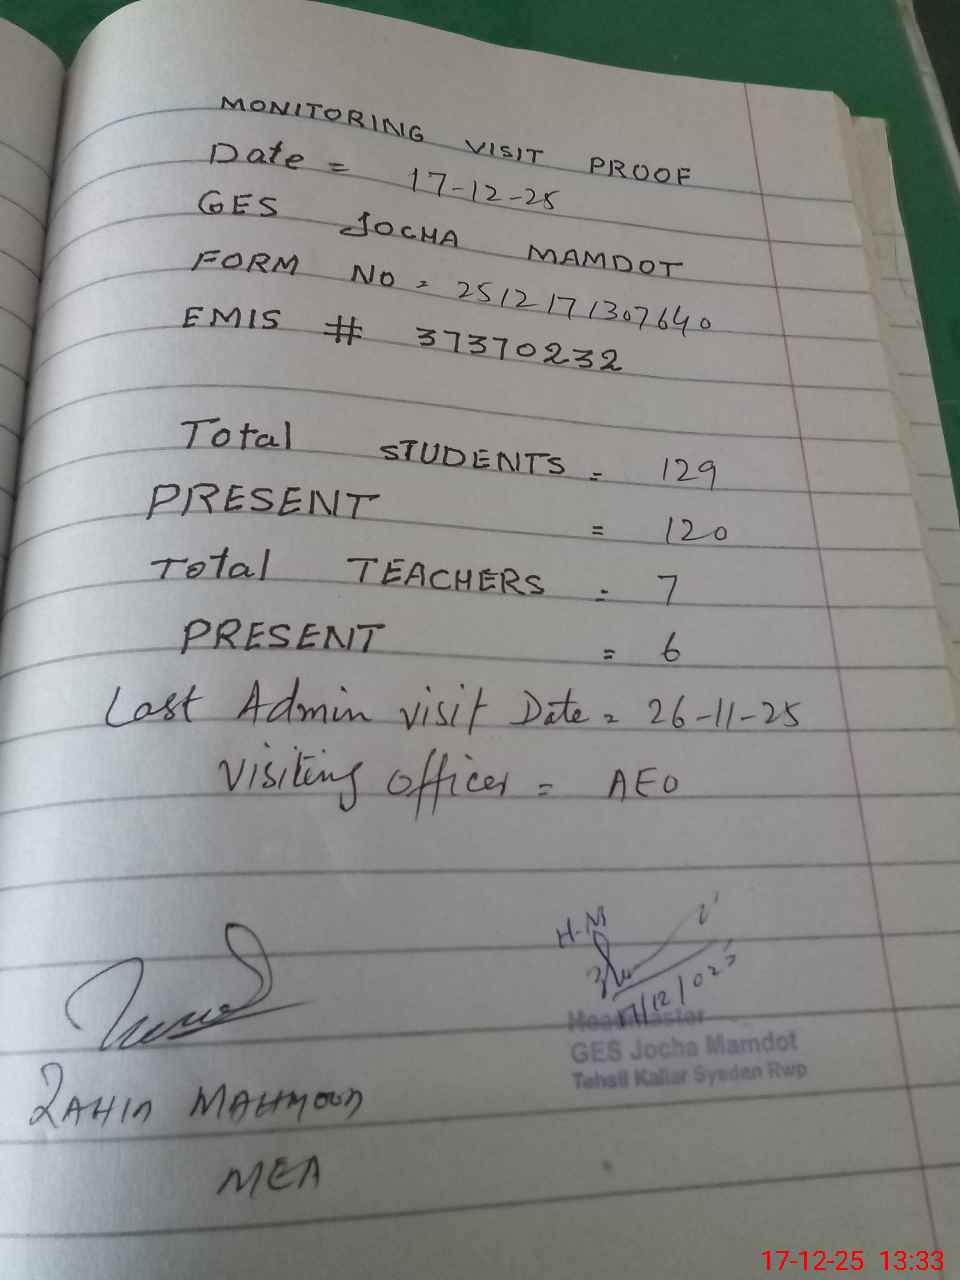 MONITORING VISIT PROOF
Date = 17-12-25
GES JOCHA MAMDOT
FORM NO = 2512171307640
EMIS # 37370232
Total STUDENTS = 129
PRESENT = 120
Total TEACHERS = 7
PRESENT = 6
Last Admin visit Date = 26-11-25
Visiting officer = AEO
H-M
17/12/025
Headmaster
GES Jocha Mamdot
Tehsil Kallar Syedan Rwp
MAHMOOD
MEA
17-12-25 13:33